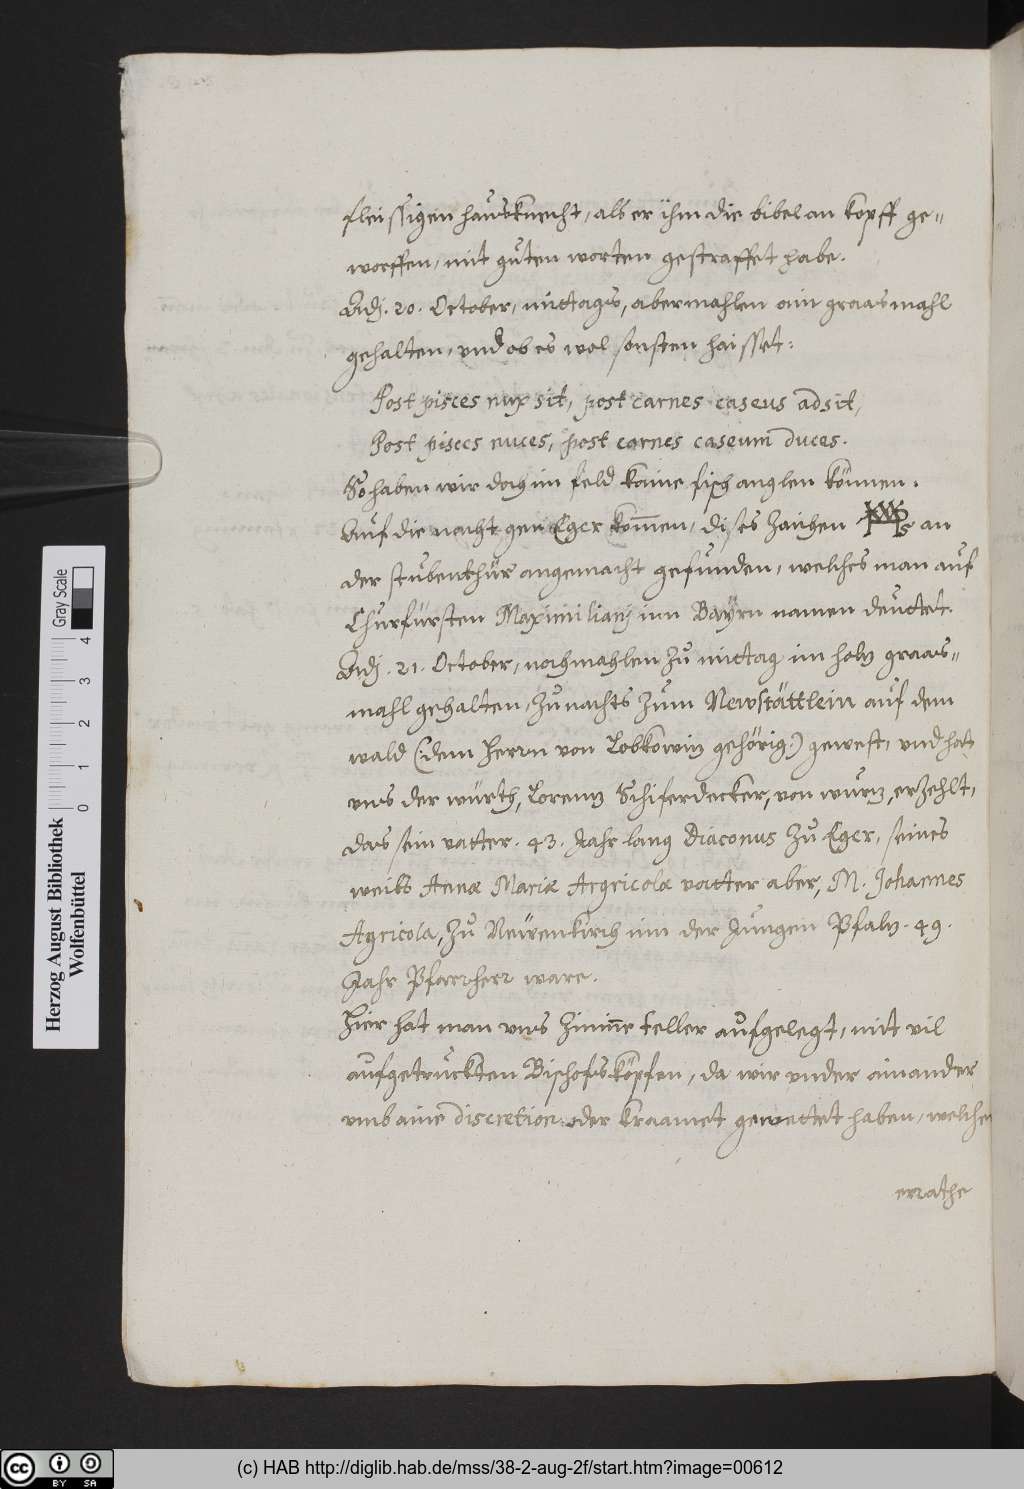 fleissigen hausknecht, als er ihm die bibel an kopff ge=
worffen, mit guten worten gestraffet habe.
Adj. 20. October, mittags, abermahlen ain graasmahl
gehalten, vnd ob es wol sonsten haisset:
Post pisces nux sit, post carnes caseus adsit,
Post pisces nuces, post carnes caseum duces.
So haben wir doch im feld kaine fisch anglen können.
Auf die nacht gen Eger kom̅en, dises Zaichen an
der stubenthür angemacht gefunden, welches man auf
Churfürsten Maximiliani inn Bayrn namen deuttet.
Adj. 21. October, nochmahlen zu mittag im holtz graas=
mahl gehalten, zu nachts zum Newstättlein auf dem
wald (:dem Herrn von Lobkowitz gehörig:) gewest, vnd hat
vns der würth, Lorentz Schiferdecker, von wurtz, erzehlt,
das sein vatter. 43. Jahr lang Diaconus zu Eger, seines
weibs Annæ Mariæ Argricolæ vatter aber, M. Johannes
Agricola, zu Newenkirch inn der Jungen Pfaltz. 49.
Jahr Pfarrherr ware.
Hier hat man vns Zinin̅e teller aufgelegt, mit vil
aufgetruckten Bischofsköpfen, da wir vnder ainander
vmb aine discretion oder kraamet gewettet haben, welcher
errathe
Herzog August Bibliothek
Wolfenbüttel
Gray Scale
0 1 2 3 4
cc BY SA
(c) HAB http://diglib.hab.de/mss/38-2-aug-2f/start.htm?image=00612